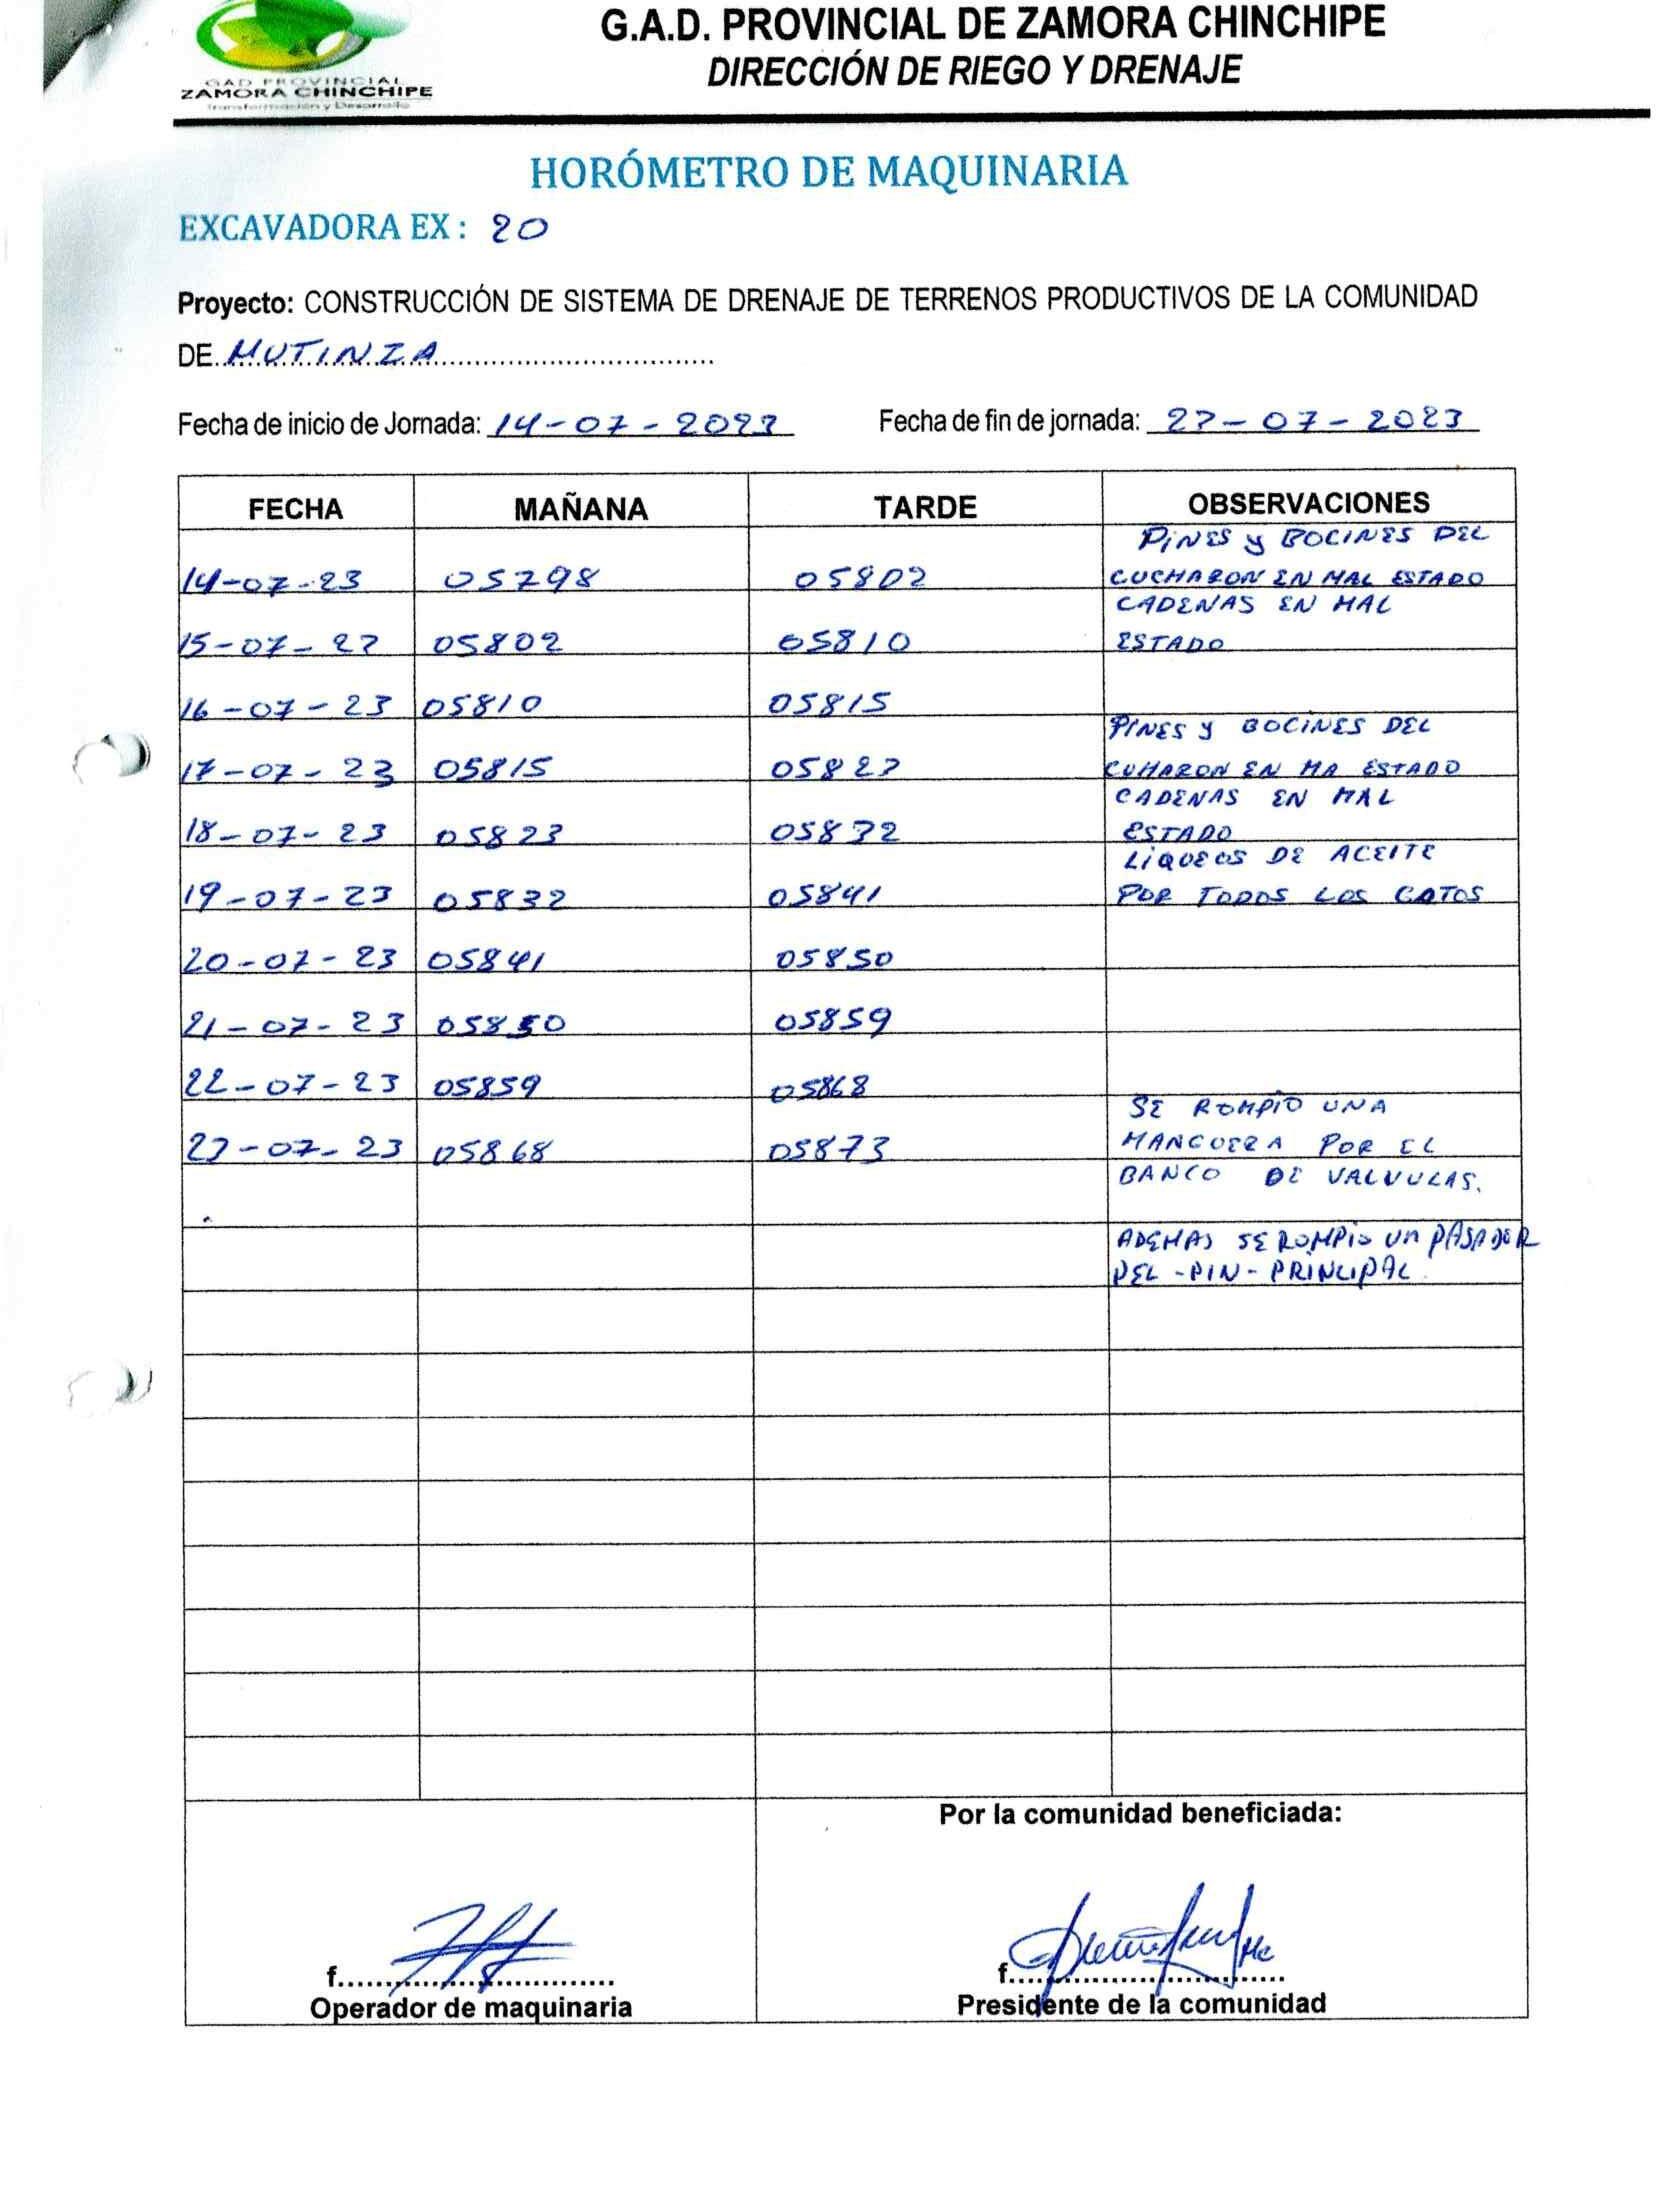 GAD PROVINCIAL
ZAMORA CHINCHIPE
Transformación y Desarrollo
G.A.D. PROVINCIAL DE ZAMORA CHINCHIPE
DIRECCIÓN DE RIEGO Y DRENAJE
HORÓMETRO DE MAQUINARIA
EXCAVADORA EX : 20
Proyecto: CONSTRUCCIÓN DE SISTEMA DE DRENAJE DE TERRENOS PRODUCTIVOS DE LA COMUNIDAD
DE MUTINZA
Fecha de inicio de Jornada: 14-07-2023 Fecha de fin de jornada: 23-07-2023
FECHA MAÑANA TARDE OBSERVACIONES
PINES y BOCINES DEL
14-07-23 05798 05802 CUCHARON EN MAL ESTADO
CADENAS EN MAL
15-07-23 05802 05810 ESTADO
16-07-23 05810 05815
PINES y BOCINES DEL
17-07-23 05815 05823 CUHARON EN MA ESTADO
CADENAS EN MAL
18-07-23 05823 05832 ESTADO
LIQUEOS DE ACEITE
19-07-23 05832 05841 POR TODOS LOS GATOS
20-07-23 05841 05850
21-07-23 05850 05859
22-07-23 05859 05868
SE ROMPIO UNA
23-07-23 05868 05873 MANGUERA POR EL
BANCO DE VALVULAS.
ADEMAS SE ROMPIO UN PASADOR
DEL -PIN- PRINCIPAL
Por la comunidad beneficiada:
f.............................. f..............................
Operador de maquinaria Presidente de la comunidad